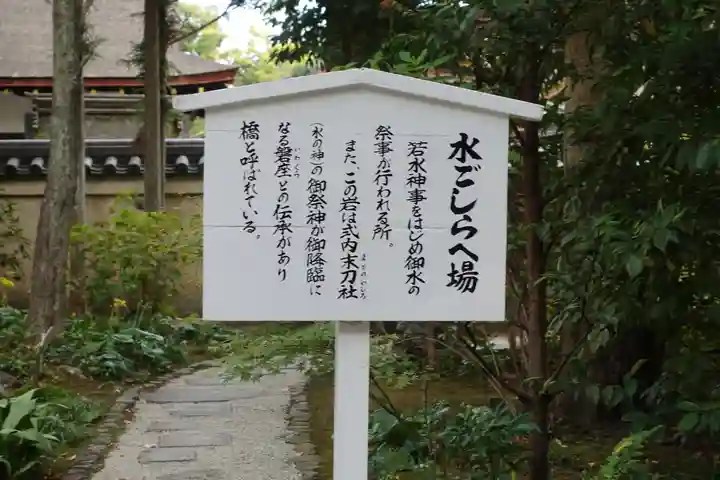 水ごしらへ場
若水神事をはじめ御水の
祭事が行われる所。
また、この岩は式内末刀社
まとのやしろ
(水の神)の御祭神が御降臨に
なる磐座との伝承があり
いわくら
橋と呼ばれている。